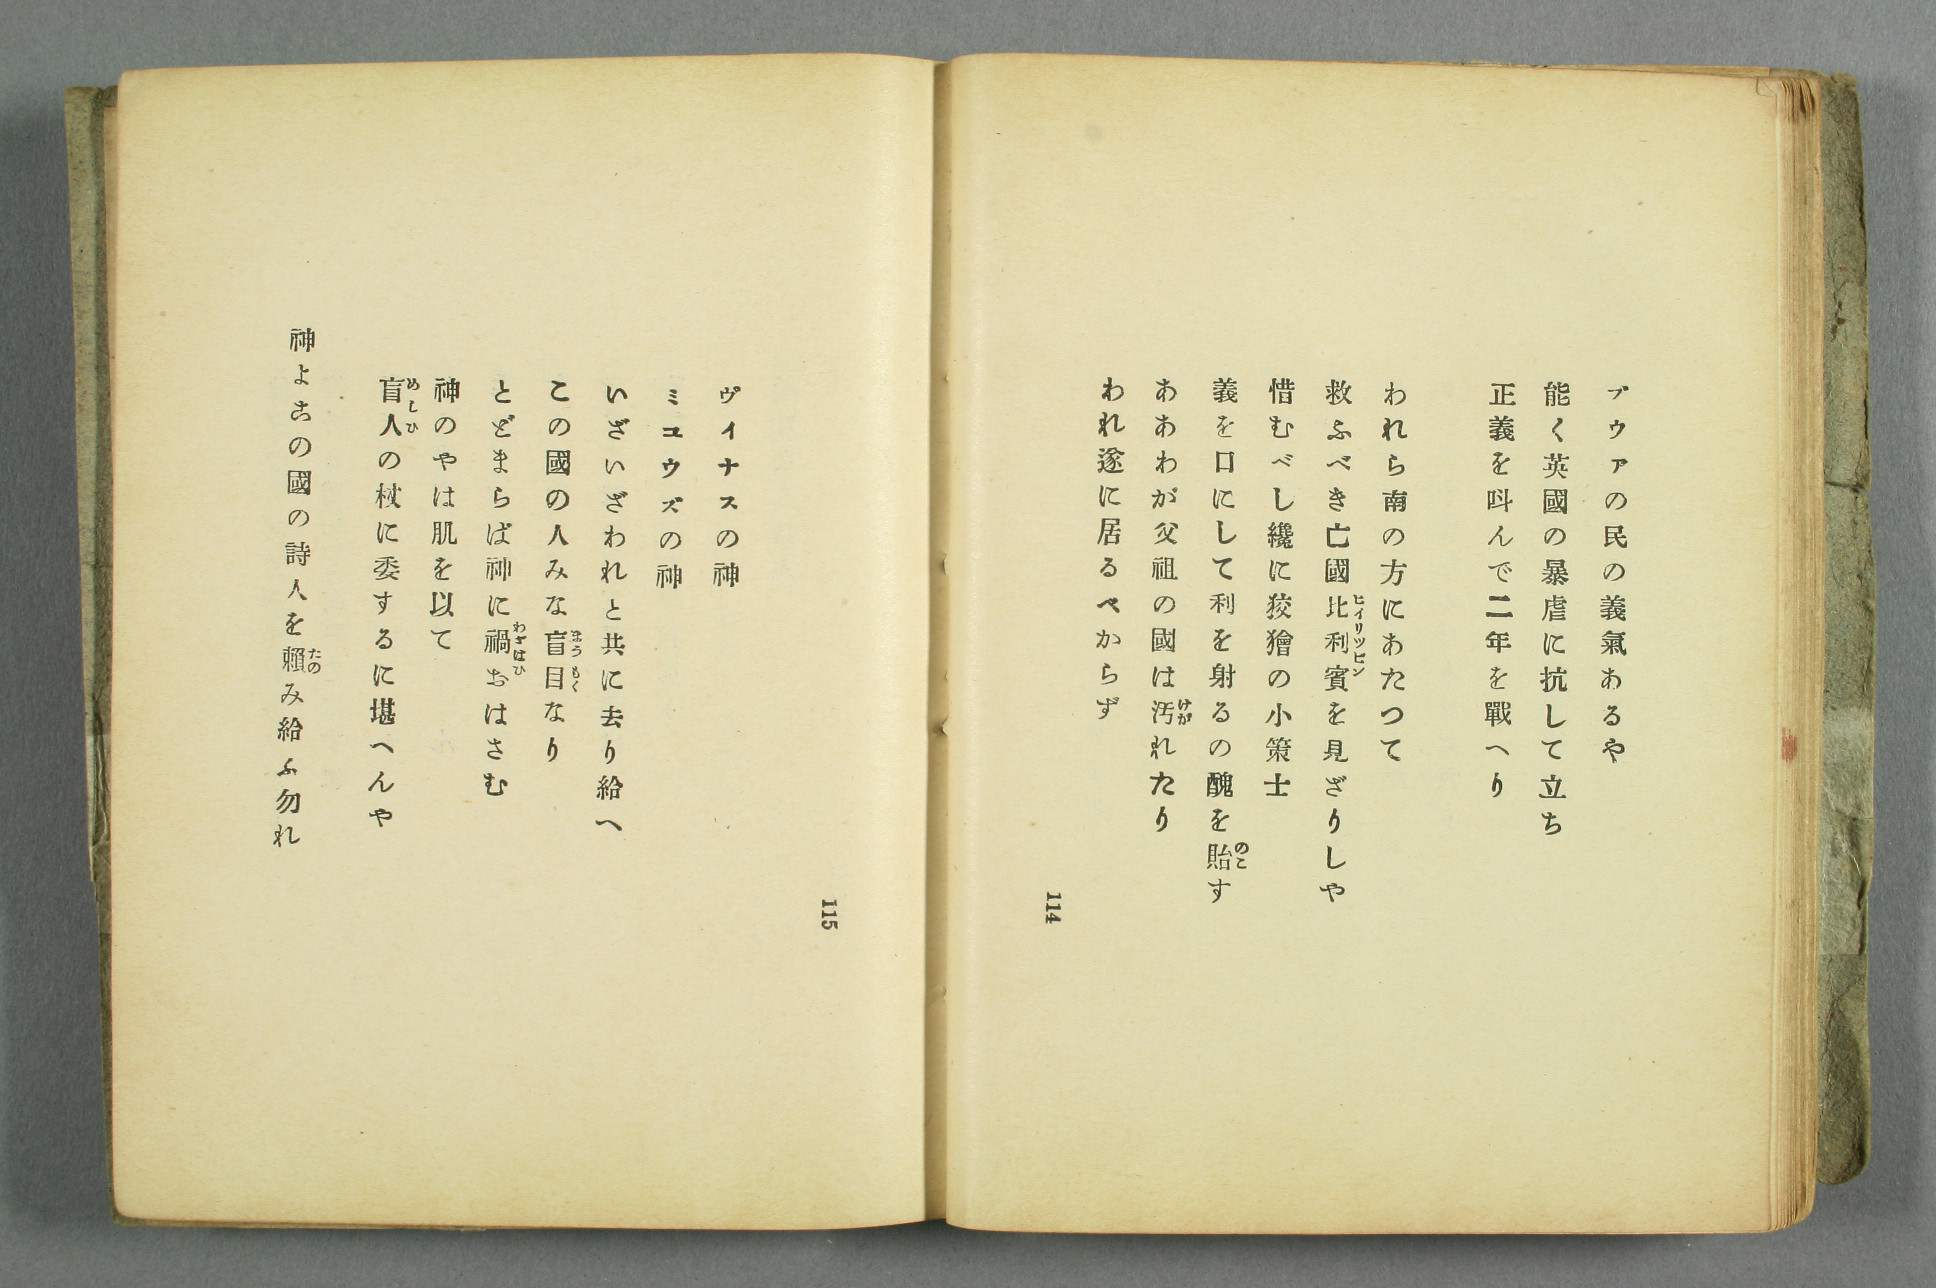 ブウアの民の義氣あるや
能く英國の暴虐に抗して立ち
正義を叫んで二年を戰へり
われら南の方にあたつて
救ふべき亡國比利賓を見ざりしや
惜むべし纔に狡獪の小策士
義を口にして利を射るの醜を貽す
あゝわが父祖の國は汚れたり
われ遂に居るべからず
114
ヴイナスの神
ミユウズの神
いざいざわれと共に去り給へ
この國の人みな盲目なり
とどまらば神に禍おはさむ
神のやは肌を以て
盲人の杖に委するに堪へんや
神よこの國の詩人を頼み給ふ勿れ
115